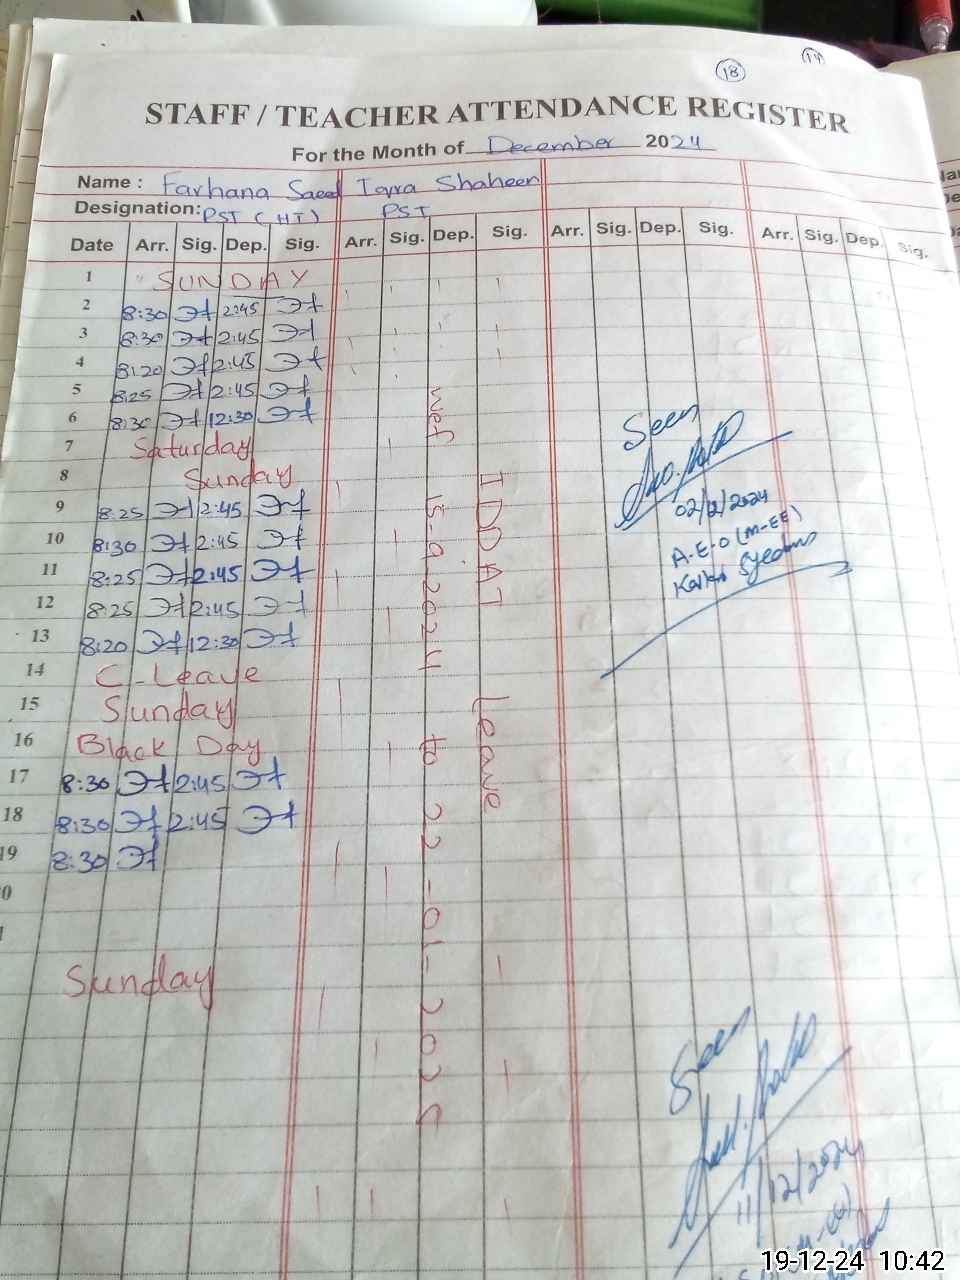 18
14
STAFF / TEACHER ATTENDANCE REGISTER
For the Month of December 2024
Name : Farhana Saeed Iqra Shaheen
Designation: PST (HT) PST
Date Arr. Sig. Dep. Sig. Arr. Sig. Dep. Sig. Arr. Sig. Dep. Sig. Arr. Sig. Dep. Sig.
1 SUNDAY
2 8:30 2:45
3 8:30 2:45
4 8:20 2:45
5 8:25 2:45
6 8:30 12:30
7 Saturday
8 Sunday
9 8:25 2:45
10 8:30 2:45
11 8:25 2:45
12 8:25 2:45
13 8:20 12:30
14 C-Leave
15 Sunday
16 Black Day
17 8:30 2:45
18 8:30 2:45
19 8:30
0
1
Sunday
wef 15-9-2024 to 22-01-202
IDDAT Leave
Seen
A.E.O (M-EE)
Seen
11/12/2024
19-12-24 10:42